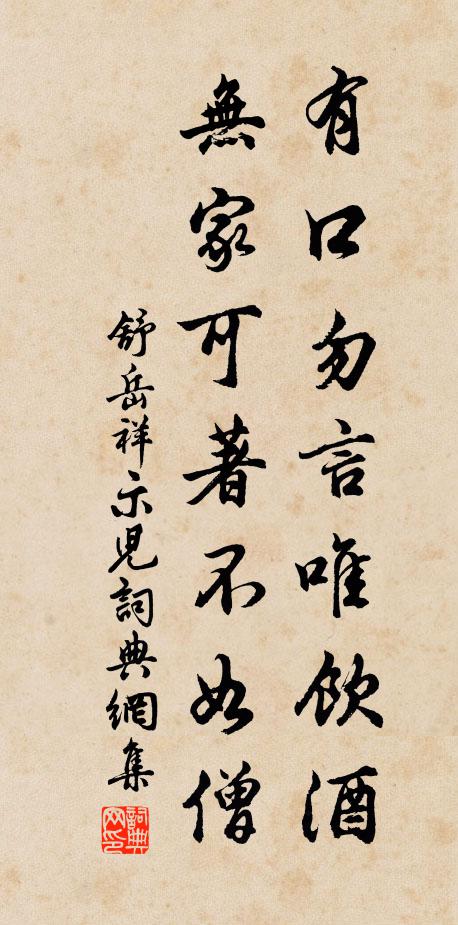 有口勿言唯飲酒
無家可著不如僧
舒岳祥示兒詞典網集
詞典網印